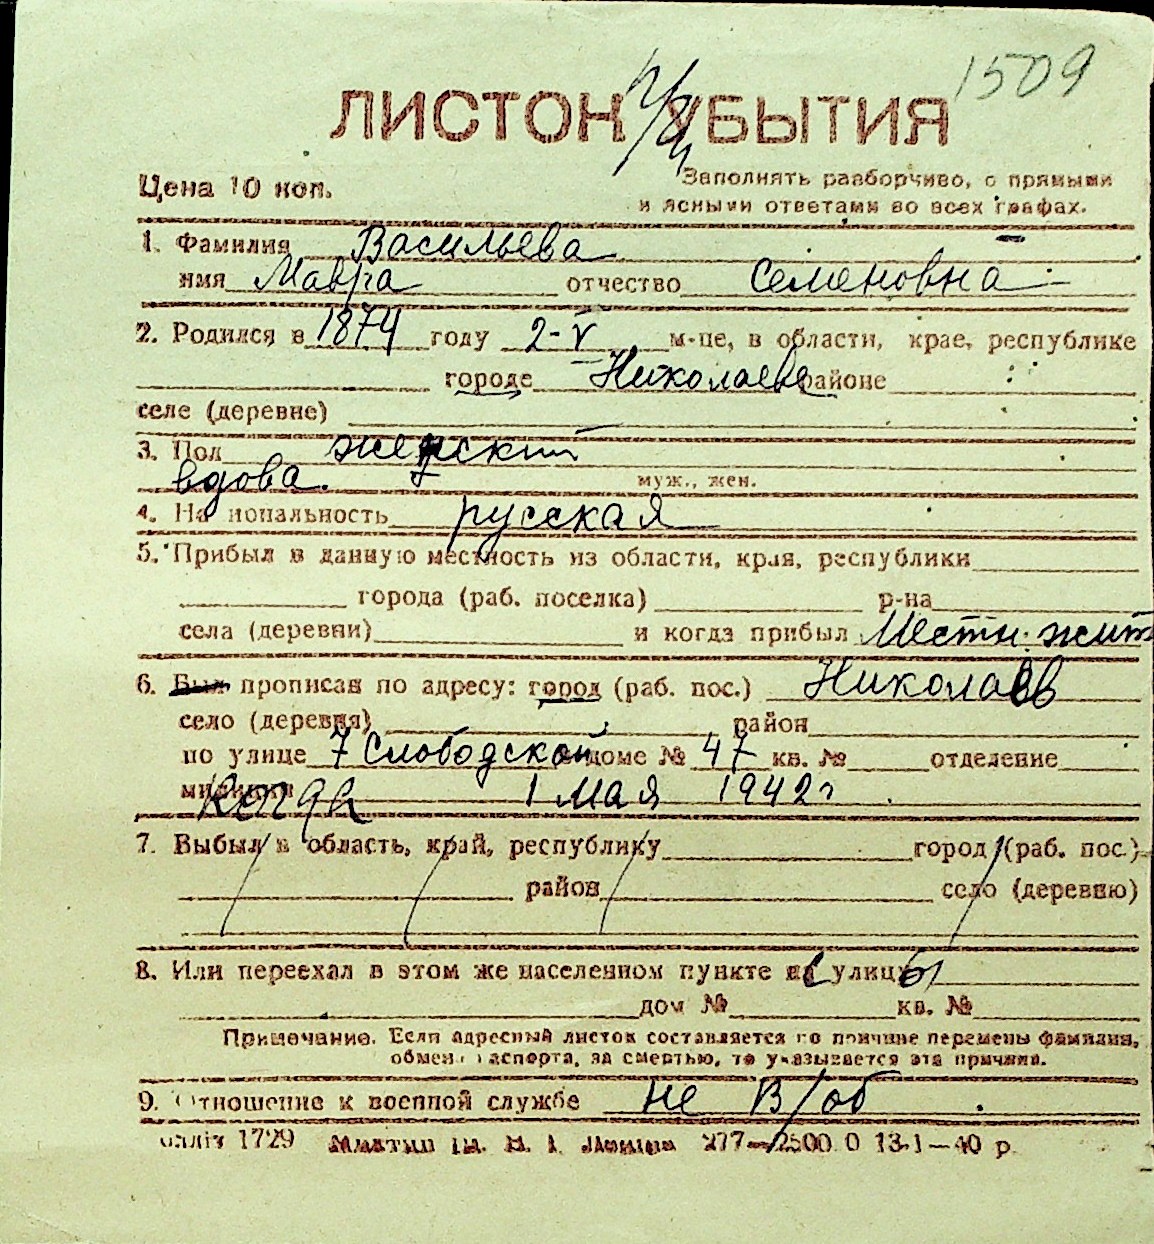 1509
ЛИСТОК УБЫТИЯ
Цена 10 коп.
Заполнять разборчиво, с прямыми
и ясными ответами во всех графах.
1. Фамилия Васильева
имя Мавра отчество Семеновна
2. Родился в 1874 году 2-V м-це, в области, крае, республике
городе Николаеве районе
селе (деревне)
3. Пол женский
вдова. муж., жен.
4. Национальность русская
5. Прибыл в данную местность из области, края, республики
города (раб. поселка) р-на
села (деревни) и когда прибыл Местн. жит
6. Был прописан по адресу: город (раб. пос.) Николаев
село (деревня) район
по улице 7 Слободской доме № 47 кв. № отделение
милиции Когда 1 мая 1942 г
7. Выбыл в область, край, республику город (раб. пос.)
район село (деревню)
8. Или переехал в этом же населенном пункте с улицы
дом № кв. №
Примечание. Если адресный листок составляется по причине перемены фамилии,
обмена паспорта, за смертью, то указывается эта причина.
9. Отношение к военной службе не в/об
1729 277—2500 0 13-1—40 р.